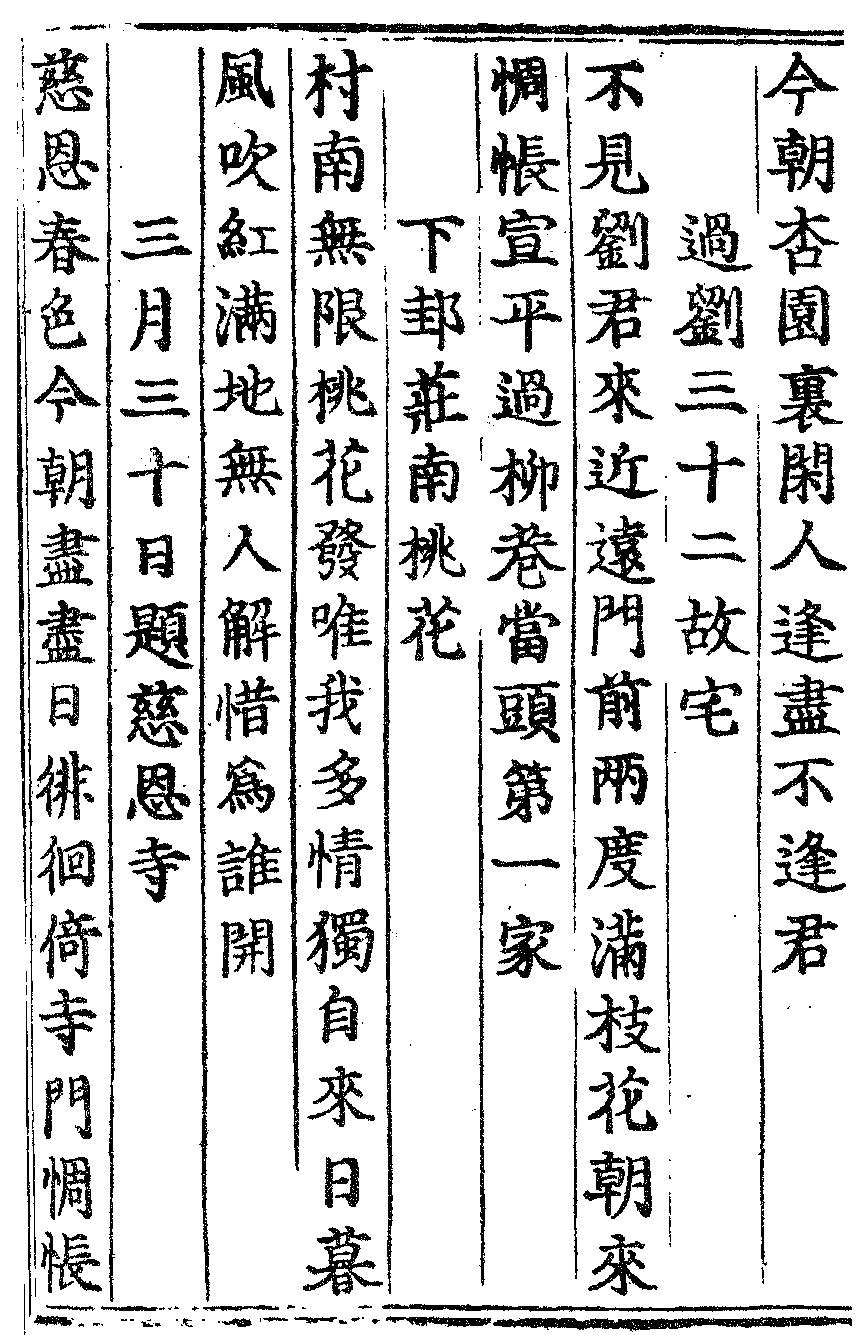 今朝杏園裏閑人逢盡不逢君
過劉三十二故宅
不見劉君來近遠門前兩度滿枝花朝來
惆悵宣平過柳巷當頭第一家
下邽莊南桃花
村南無限桃花發唯我多情獨自來日暮
風吹紅滿地無人解惜為誰開
三月三十日題慈恩寺
慈恩春色今朝盡盡日徘徊倚寺門惆悵